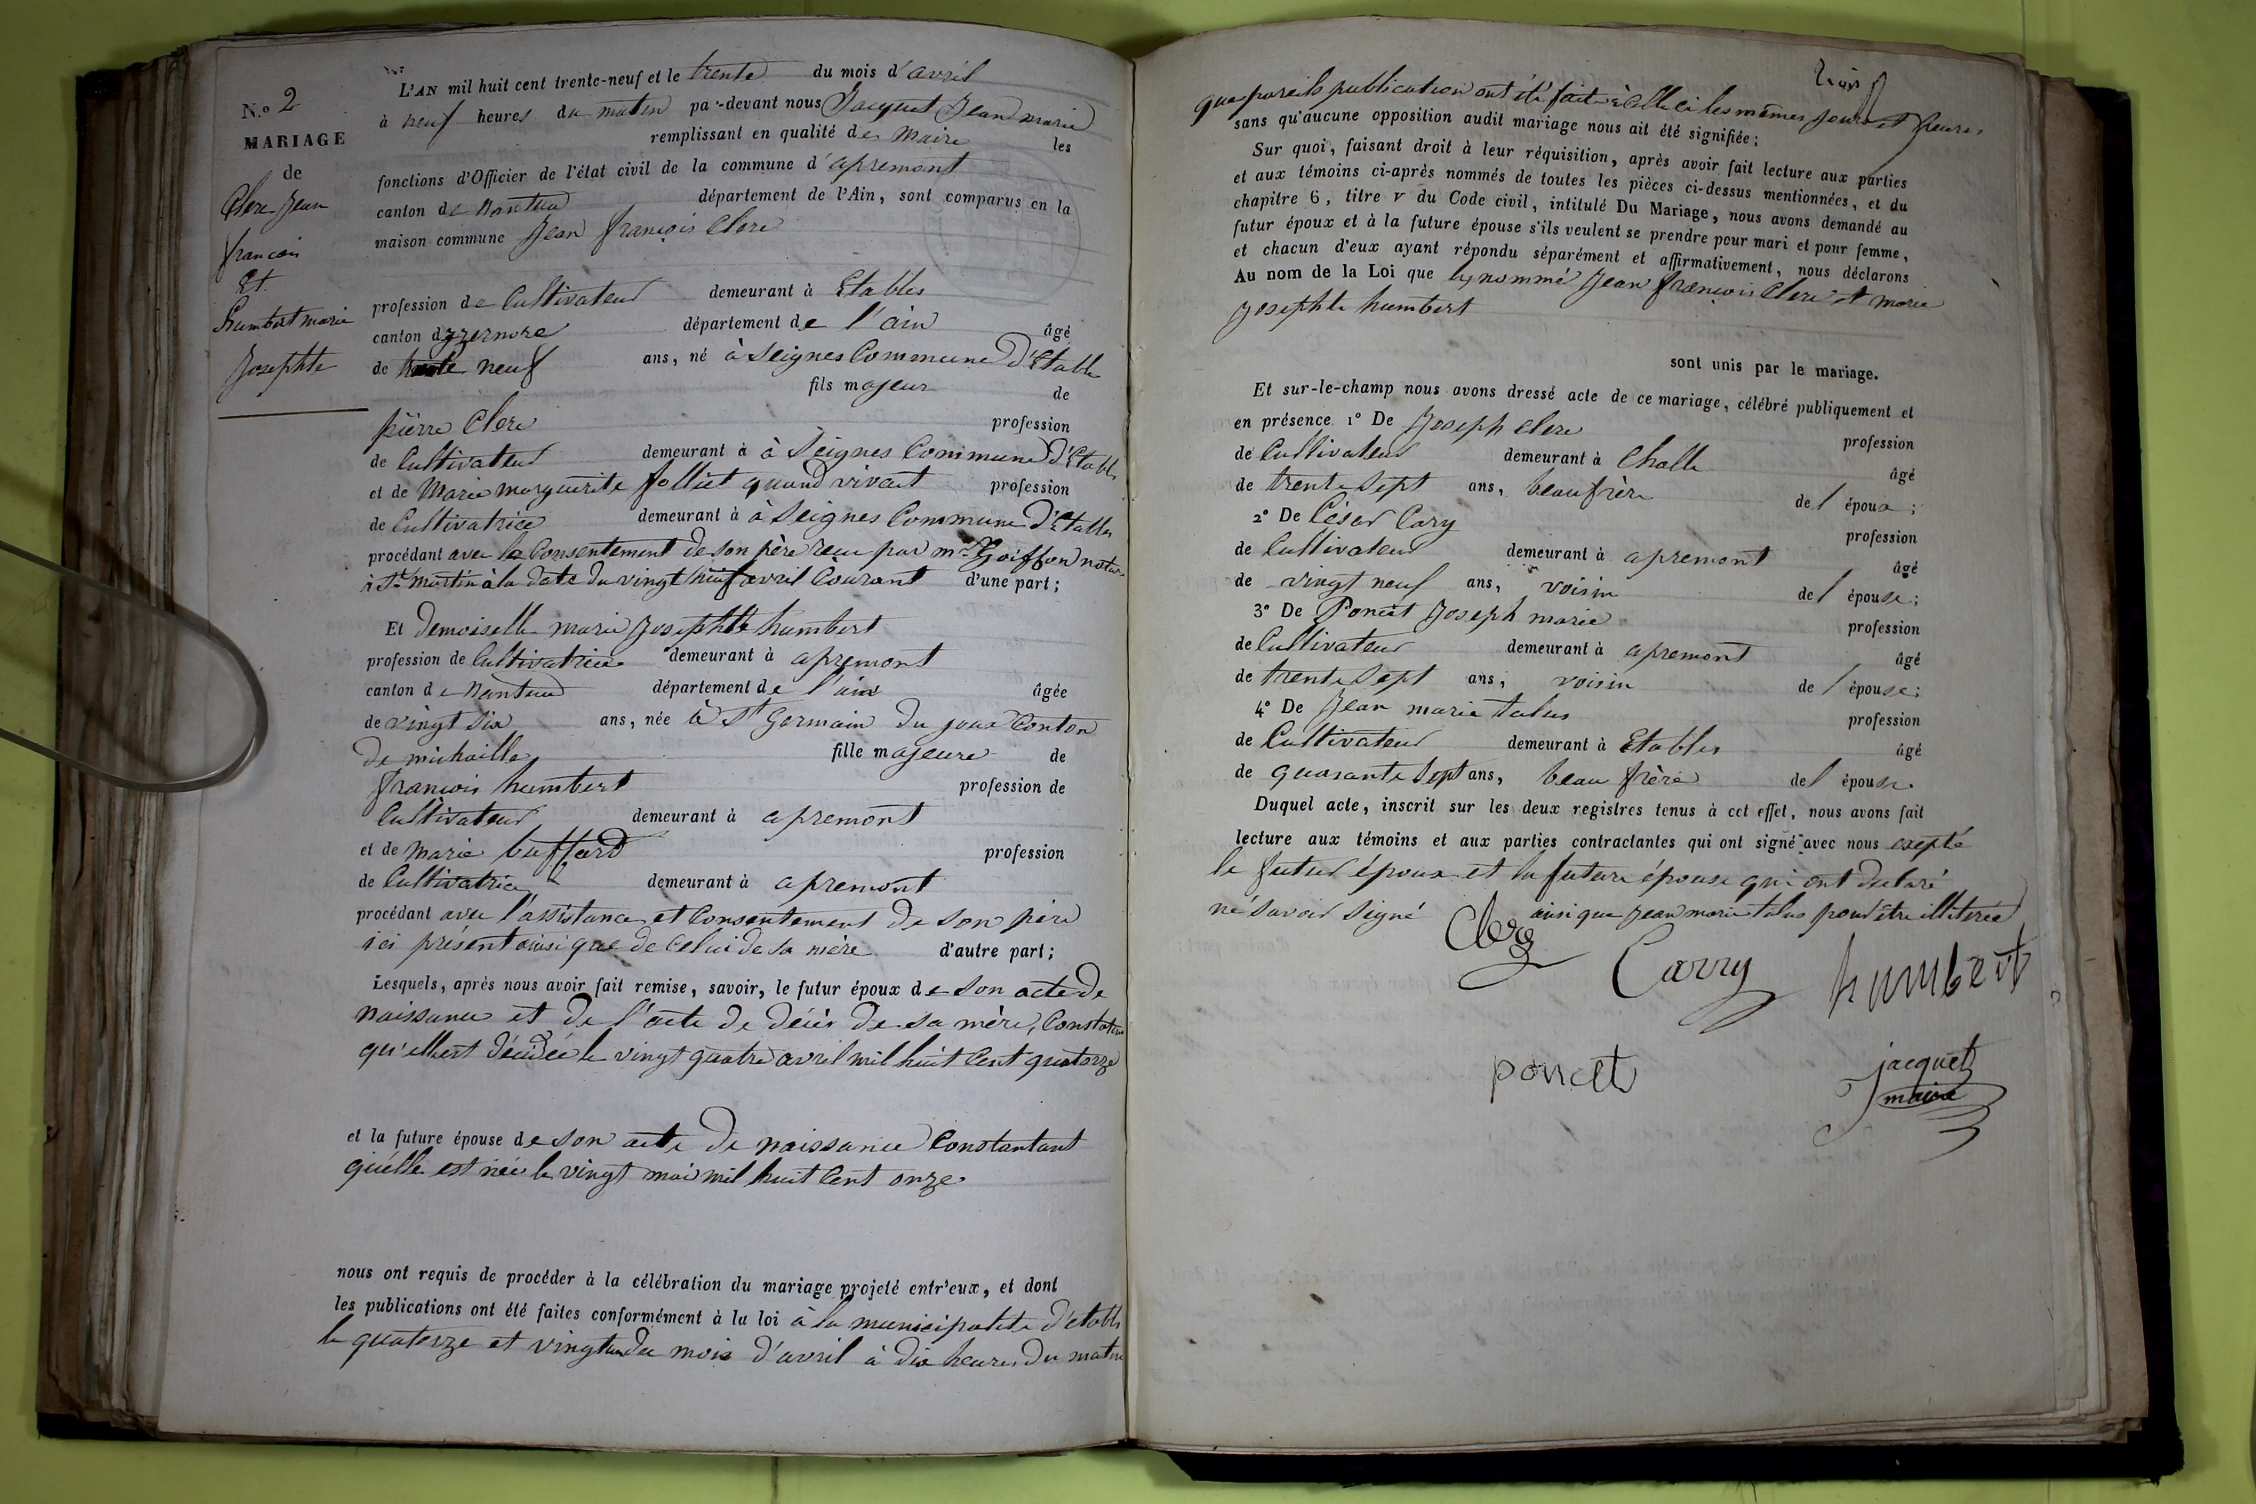 N.o 2
MARIAGE
de
Clere Jean
francois
Et
humbert marie
Josephte
L'AN mil huit cent trente-neuf et le trente du mois d'avril
à neuf heures du matin par-devant nous Jacquet Jean marie
remplissant en qualité de Maire les
fonctions d'Officier de l'état civil de la commune d'apremont
canton de Nantua département de l'Ain, sont comparus en la
maison commune Jean françois Clere
profession de Cultivateur demeurant à Etables
canton dyzernore département de l'ain âgé
de trente neuf ans, né à Seignes Commune D'Etable
fils majeur de
pierre Clere profession
de Cultivateur demeurant à à Seignes Commune D'Etable
et de Marie marguerite folliet quand vivait profession
de Cultivatrice demeurant à à Seignes Commune D'Etables
procédant avec le Consentement de son père recu par me Goiffon notaire
à St martin à la date du vingt huit avril Courant d'une part;
Et demoiselle marie Josephte humbert
profession de Cultivatrice demeurant à apremont
canton de Nantua département de l'ain âgée
de vingt six ans, née à St Germain du joux Conton
De michaille fille majeure de
francois humbert profession de
Cultivateur demeurant à apremont
et de marie buffard profession
de Cultivatrice demeurant à apremont
procédant avec l'assistance et Consentement de son père
ici présent ainsi que de Celui de sa mère d'autre part;
Lesquels, après nous avoir fait remise, savoir, le futur époux de son acte de
naissance et de l'acte de décès de sa mère, Constatant
qu'ellest décédée le vingt quatre avril mil huit Cent quatorze
et la future épouse de son acte de naissance Constantant
qu'elle est née le vingt mai mil huit Cent onze
nous ont requis de procéder à la célébration du mariage projeté entr'eux, et dont
les publications ont été faites conformément à la loi à la municipalité d'etable
le quatorze et vingt un du mois d'avril à dix heures du matin
trois
que pareils publication ont été faite à celle ci les mêmes jours et heures
sans qu'aucune opposition audit mariage nous ait été signifiée;
Sur quoi, faisant droit à leur réquisition, après avoir fait lecture aux parties
et aux témoins ci-après nommés de toutes les pièces ci-dessus mentionnées, et du
chapitre 6, titre v du Code civil, intitulé Du Mariage, nous avons demandé au
futur époux et à la future épouse s'ils veulent se prendre pour mari et pour femme,
et chacun d'eux ayant répondu séparément et affirmativement, nous déclarons
Au nom de la Loi que les nommé Jean françois Clere et marie
Josephte humbert
sont unis par le mariage.
Et sur-le-champ nous avons dressé acte de ce mariage, célébré publiquement et
en présence 1° De Joseph Clere profession
de Cultivateur demeurant à Challe âgé
de trente sept ans, beaufrère de l époux;
2° De César Cary profession
de Cultivateur demeurant à apremont âgé
de vingt neuf ans, voisin de l épouse;
3° De Poncet Joseph marie profession
de Cultivateur demeurant à apremont âgé
de trente sept ans, voisin de l épouse;
4° De Jean marie talus profession
de Cultivateur demeurant à Etables âgé
de quarante sept ans, beau frère de l épouse
Duquel acte, inscrit sur les deux registres tenus à cet effet, nous avons fait
lecture aux témoins et aux parties contractantes qui ont signé avec nous exepté
le futur époux et la future épouse qui ont declaré
ne savoir signé ainsi que Jean marie talus pour être illiterée
Clerc
Carry
humbert
poncet
jacquet
maire